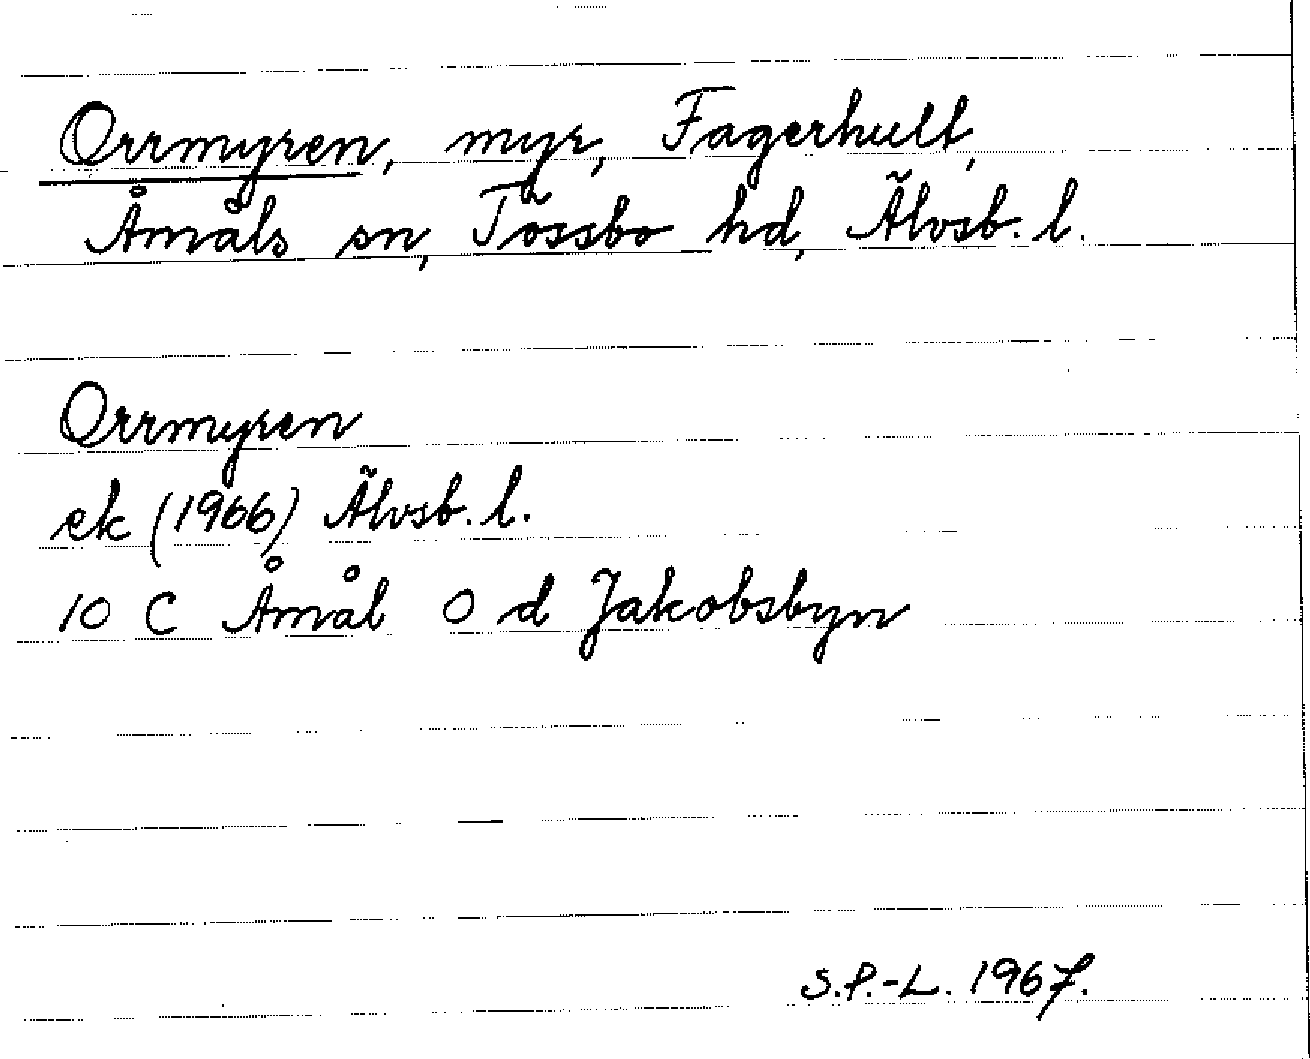 Orrmyren, myr, Fagerhult,
Åmåls sn, Tössbo hd, Älvsb. l.
Orrmyren
ek (1966) Älvsb. l.
10 C Åmål 0 d Jakobsbyn
S.P.-L. 1967.